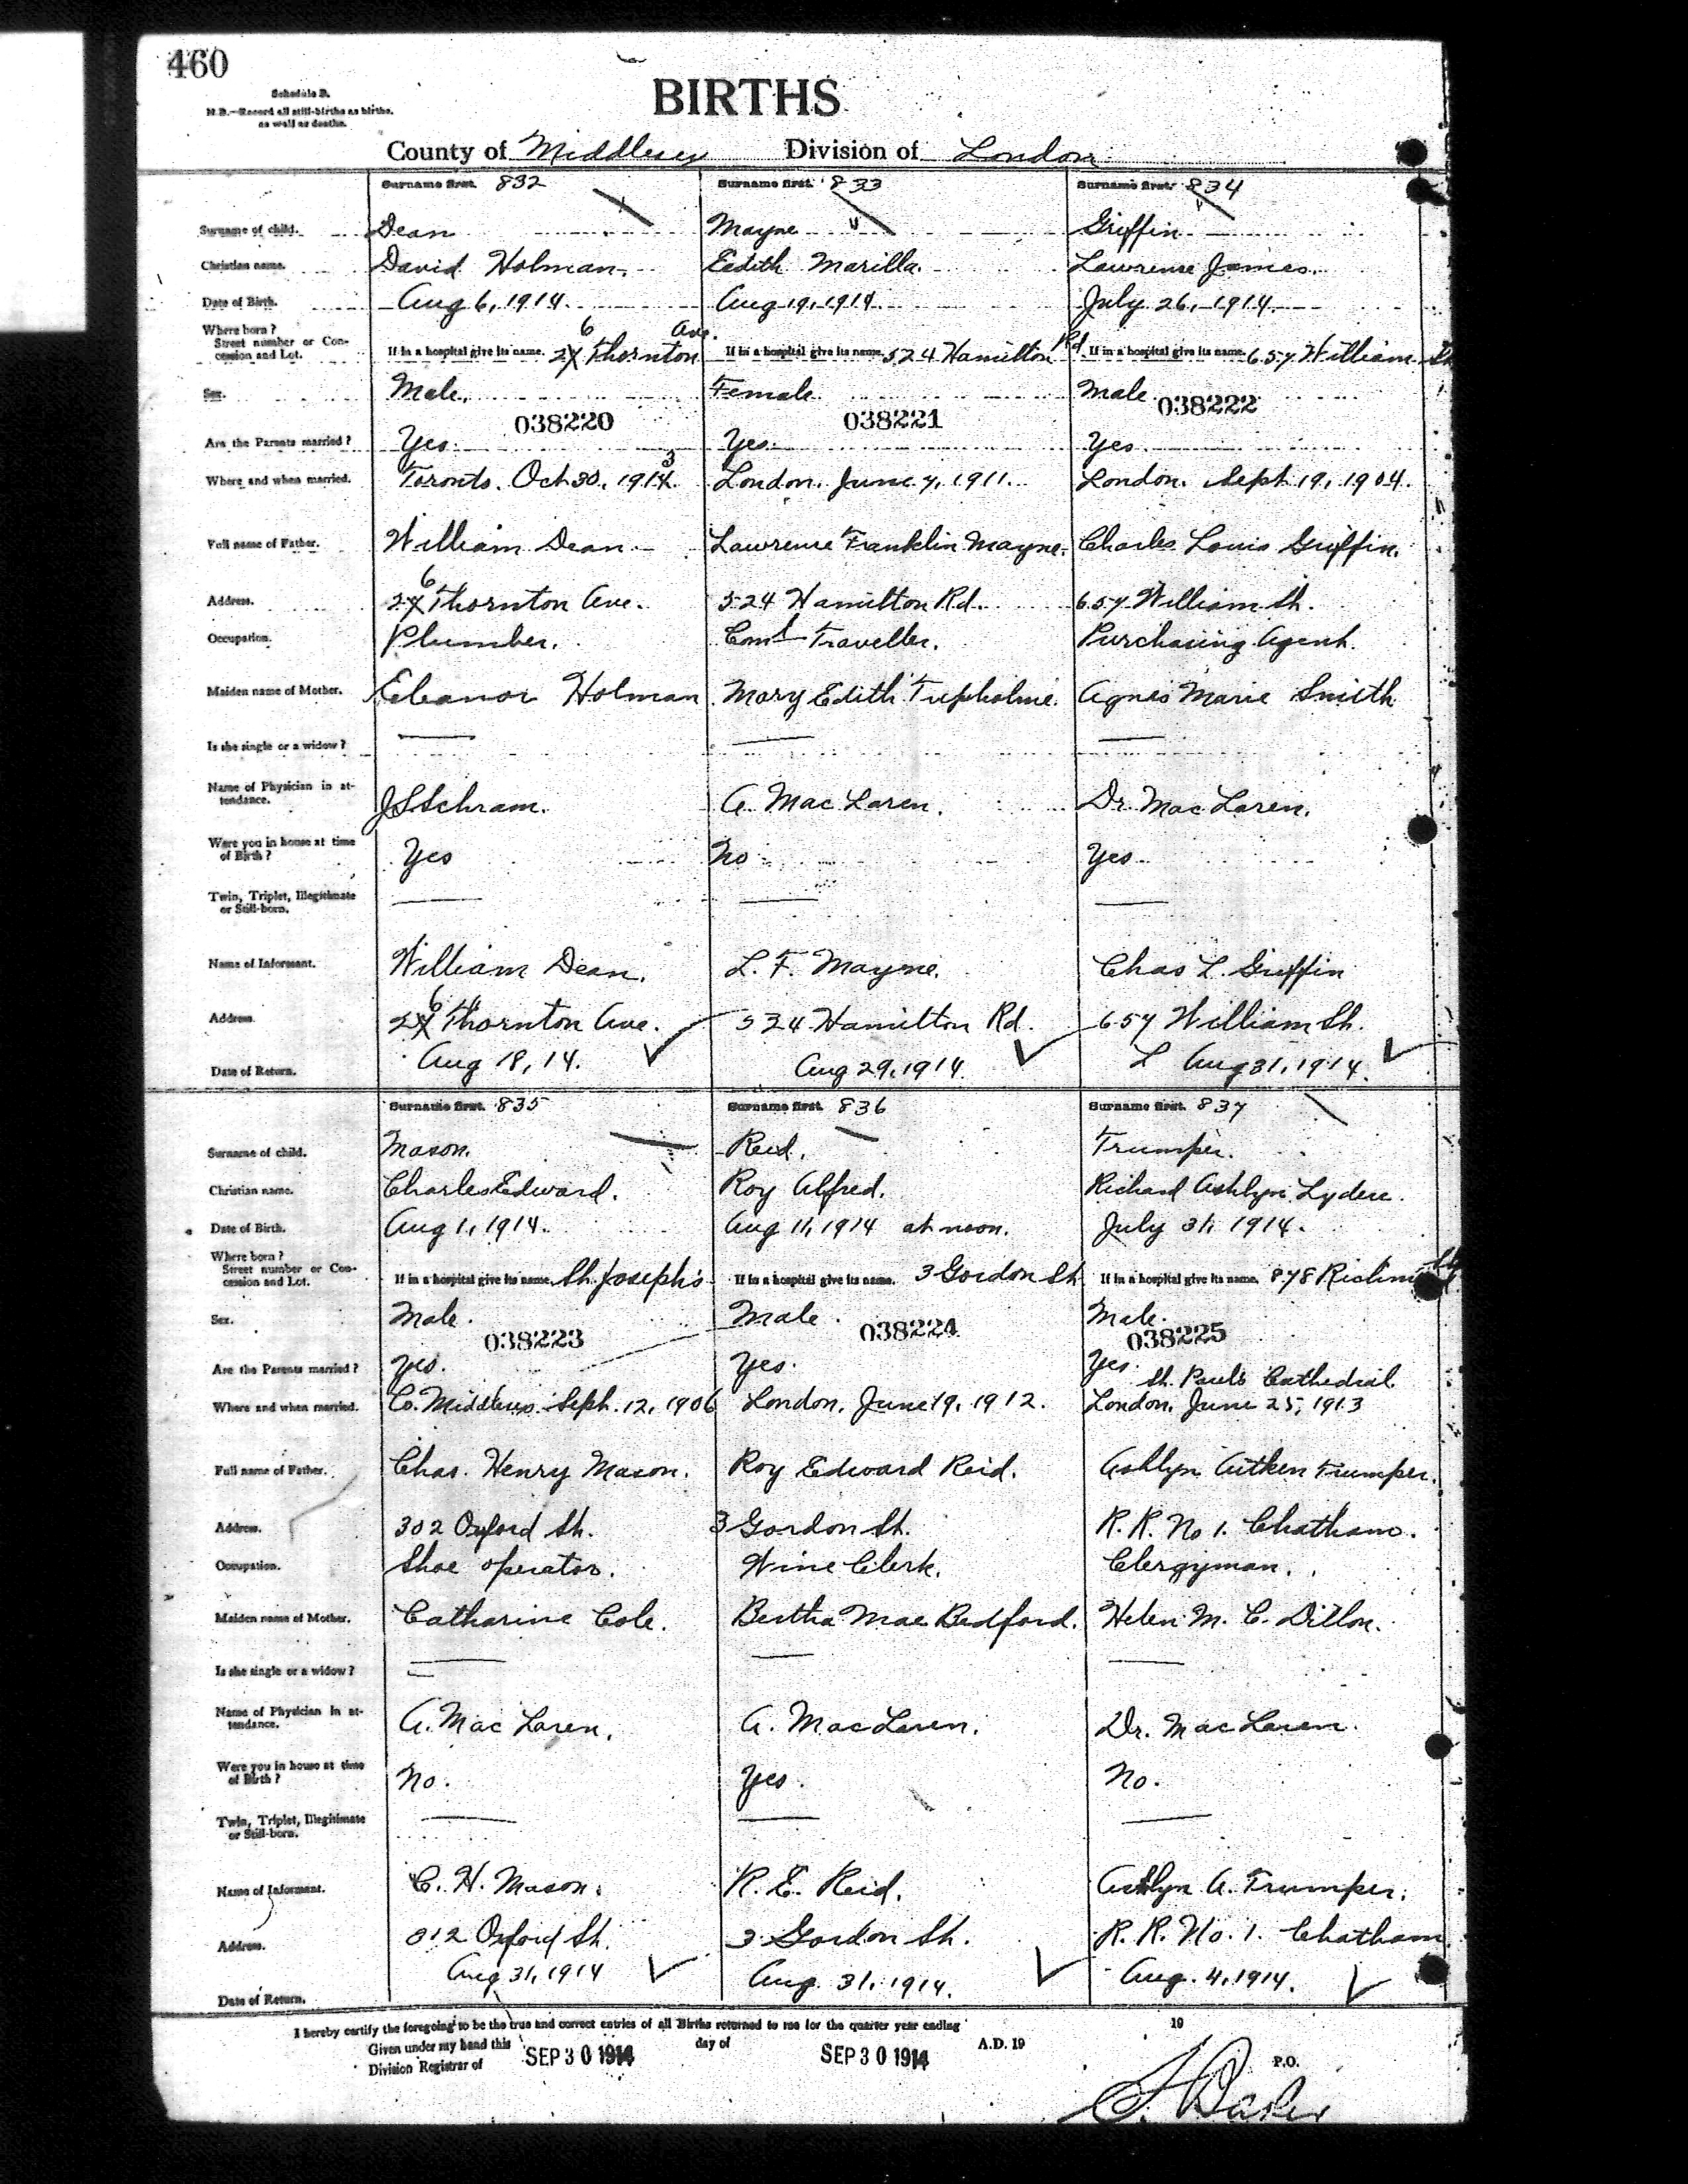 460
Schedule B.
N.B.—Record all still-births as births,
as well as deaths.
BIRTHS
County of Middlesex Division of London
Surname first. 832 Surname first. 833 Surname first. 834
Surname of child. Dean Mayne Griffin
Christian name. David Holman. Eedith Marilla. Lawrence James.
Date of Birth. Aug 6, 1914. Aug 19, 1914 July 26, 1914
Where born?
Street number or Concession and Lot. If in a hospital give its name. 26 Thornton Ave. If in a hospital give its name. 524 Hamilton Rd If in a hospital give its name. 657 William St
Sex. Male. Female Male
038220 038221 038222
Are the Parents married? Yes. Yes. Yes.
Where and when married. Toronto. Oct 30, 1913. London. June 7, 1911. London. Sept 19, 1904.
Full name of Father. William Dean Lawrence Franklin Mayne. Charles Louis Griffin.
Address. 26 Thornton Ave. 524 Hamilton Rd. 657 William St.
Occupation. Plumber. Coml Traveller. Purchasing Agent.
Maiden name of Mother. Eleanor Holman Mary Edith Tupholme. Agnes Marie Smith
Is she single or a widow? — — —
Name of Physician in attendance. J S Schram. A. MacLaren. Dr. MacLaren.
Were you in house at time of Birth? Yes No Yes
Twin, Triplet, Illegitimate or Still-born. — — —
Name of Informant. William Dean. L. F. Mayne. Chas L. Griffin
Address. 26 Thornton Ave. 524 Hamilton Rd. 657 William St.
Date of Return. Aug 18, 14. Aug 29, 1914. L Aug 31, 1914.
Surname first. 835 Surname first. 836 Surname first. 837
Surname of child. Mason. Reid. Trumper.
Christian name. Charles Edward. Roy Alfred. Richard Ashlyn Lydere.
Date of Birth. Aug 1, 1914. Aug 11, 1914 at noon. July 31, 1914.
Where born?
Street number or Concession and Lot. If in a hospital give its name. St. Joseph's If in a hospital give its name. 3 Gordon St If in a hospital give its name. 878 St.
Sex. Male. Male. Male.
038223 038224 038225
Are the Parents married? Yes. Yes. Yes.
St. Paul's Cathedral
Where and when married. Co. Middlesex. Sept. 12, 1906 London, June 19, 1912. London. June 25, 1913
Full name of Father. Chas. Henry Mason. Roy Edward Reid. Ashlyn Aitken Trumper.
Address. 302 Oxford St. 3 Gordon St. R. R. No 1. Chatham.
Occupation. Shoe operator. Wine Clerk. Clergyman.
Maiden name of Mother. Catharine Cole. Bertha Mae Bedford. Helen M. C. Dillon.
Is she single or a widow? — — —
Name of Physician in attendance. A. MacLaren. A. MacLaren. Dr. MacLaren.
Were you in house at time of Birth? No. Yes. No.
Twin, Triplet, Illegitimate or Still-born. — — —
Name of Informant. C. H. Mason. R. E. Reid. Ashlyn A. Trumper.
Address. 312 Oxford St. 3 Gordon St. R. R. No. 1. Chatham
Date of Return. Aug 31, 1914 Aug. 31, 1914. Aug. 4, 1914.
I hereby certify the foregoing to be the true and correct entries of all Births returned to me for the quarter year ending 19
Given under my hand this SEP 30 1914 day of SEP 30 1914 A.D. 19
Division Registrar of P.O.